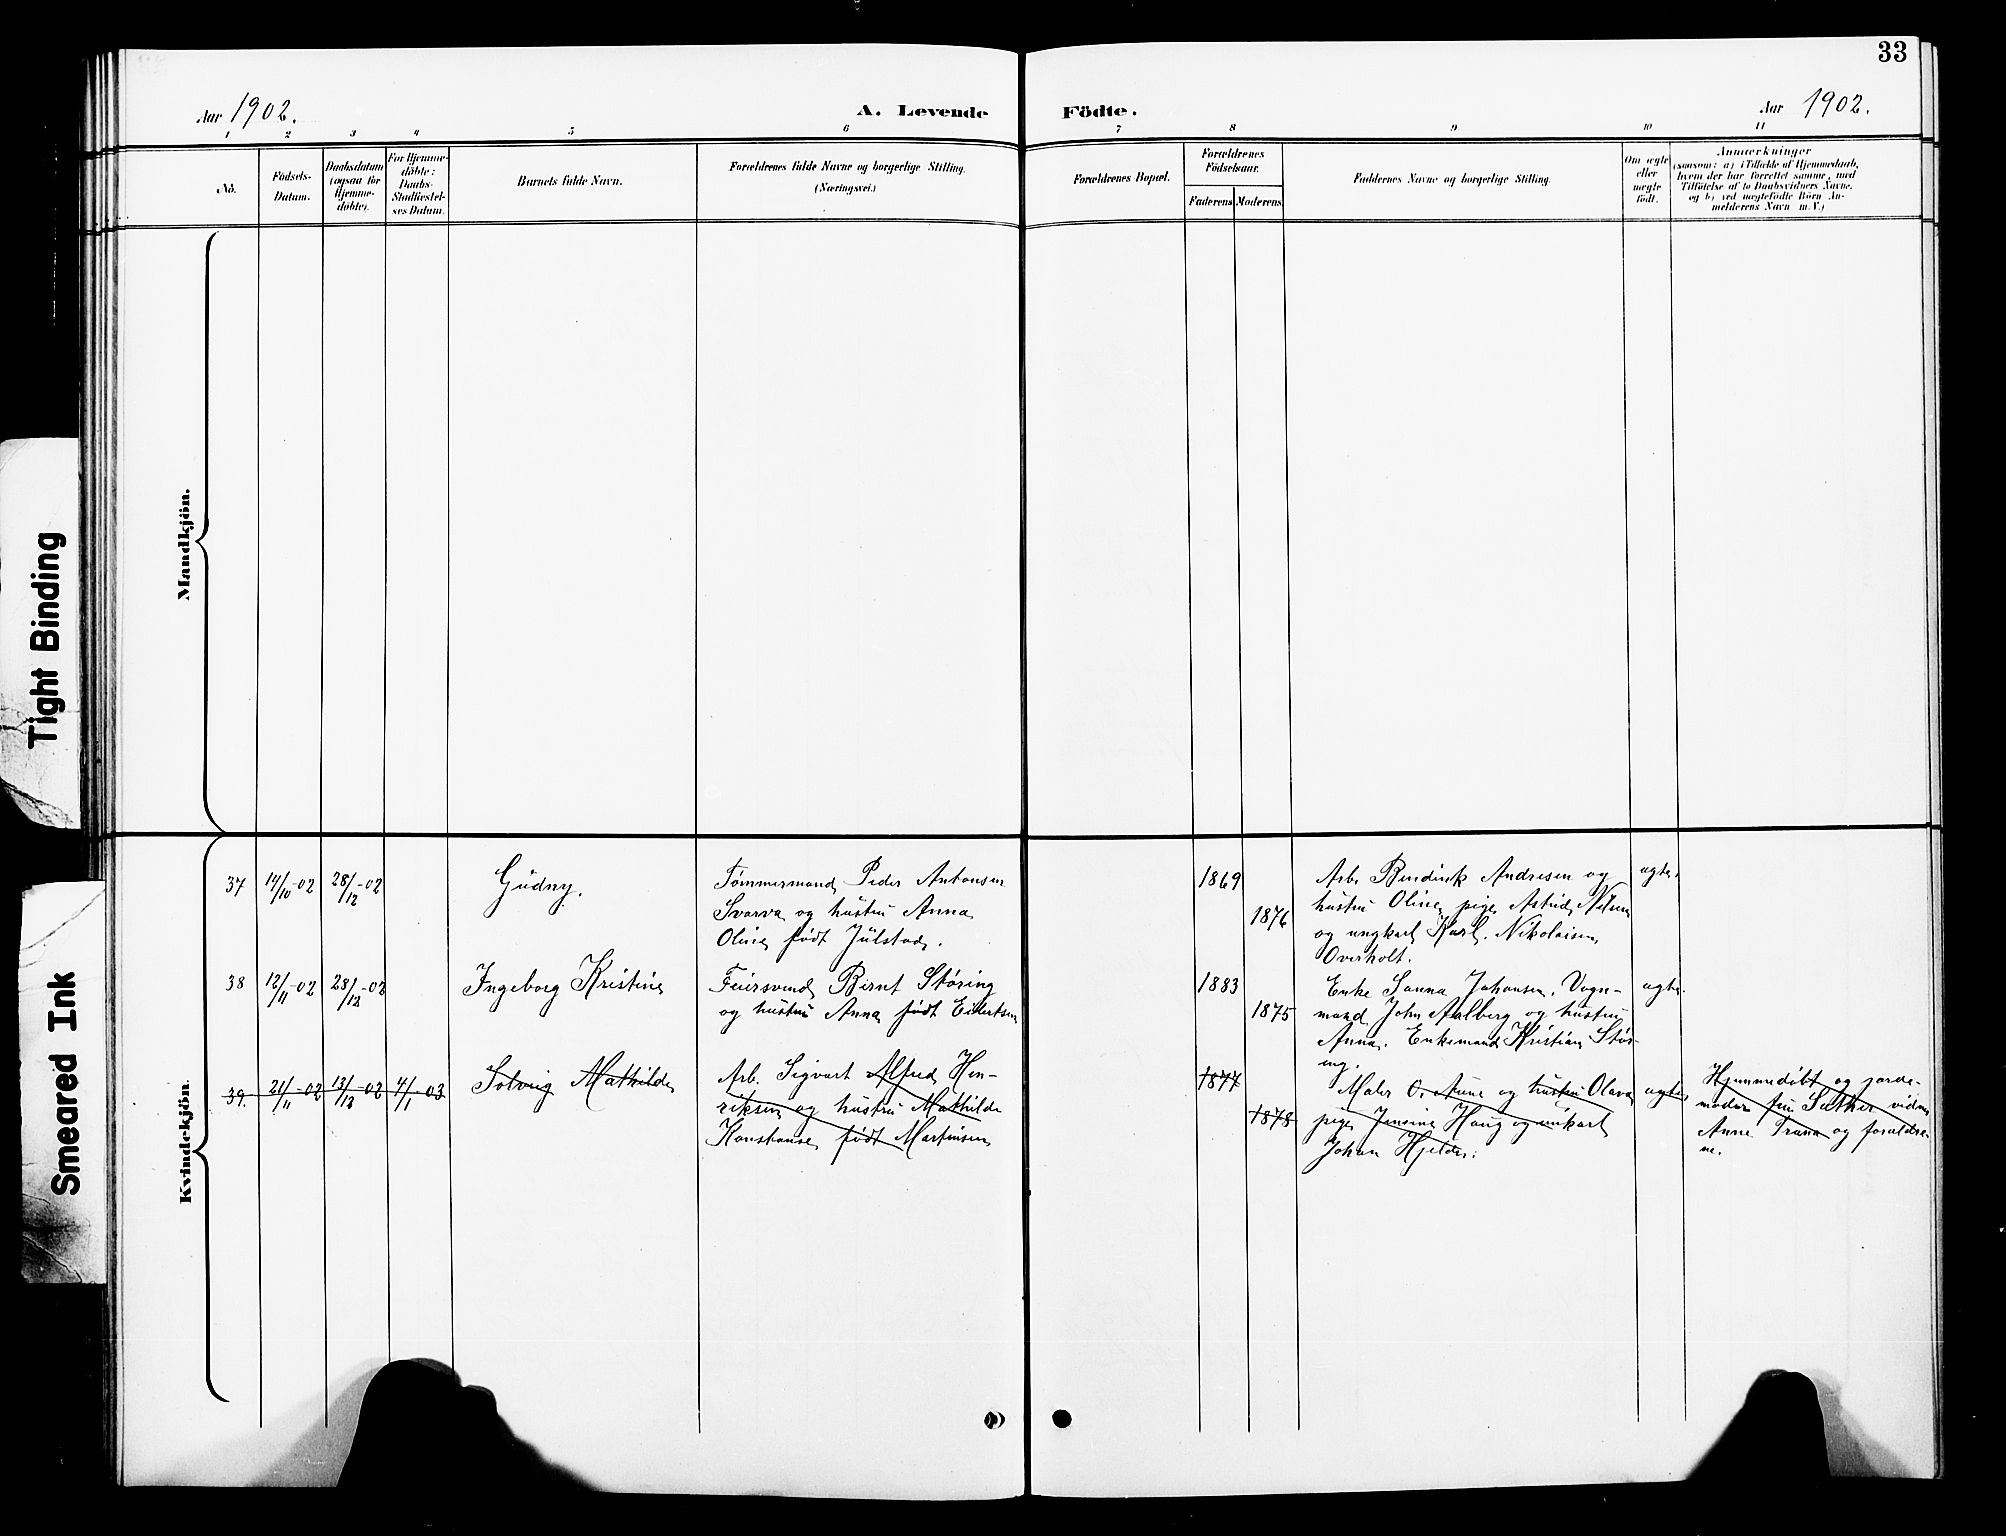 33
Aar 1902.
A. Levende Födte.
Aar 1902.
1 2 3 4 5 6 7 8 9 10 11
No.
Födsels-
Datum.
Daabsdatum
(ogsaa for
Hjemme-
döbte).
For Hjemme-
döbte:
Daabs-
Stadfæstel-
ses Datum.
Barnets fulde Navn.
Forældrenes fulde Navne og borgerlige Stilling.
(Næringsvei.)
Forældrenes Bopæl.
Forældrenes
Födselsaar.
Faderens Moderens
Faddernes Navne og borgerlige Stilling.
Om ægte
eller
uægte
födt.
Anmærkninger
(saasom: a) i Tilfælde af Hjemmedaab,
hvem der har forrettet samme, med
Tilföielse af to Daabsvidners Navne.
og b) ved uægtefödte Börn An-
melderens Navn m. V.)
Mandkjön.
Tight Binding
Smeared Ink
Kvindekjön.
37 14/10-02 28/12-02 Gudny.
Tømmermand Peder Antonsen
Svarva og hustru Anna
Oline født Julstad.
1869
1876
Arb. Bendink Andresen og
hustru Oline, pige Astrid Nilsen
og ungkarl Karl Nikolaisen
Overholt.
ægte.
38 12/11-02 28/12-02 Ingeborg Kristine
Feiersvend Bernt Støring
og hustru Anna født Eilertsen
1883
1875
Enke Sanna Johansen. Vogn-
mand John Aalberg og hustru
Anna. Enkemand Kristian Stør-
ing.
ægte.
39. 21/11-02 13/12-02 4/1-03 Solveig Mathilde
Arb. Sigvart Alfred Hen-
riksen og hustru Mathilde
Konstanse født Martinsen
1877
1878
Maler O. Aune og hustru Olava
pige Jensine Haug og unkarl
Johan Hjelde.
ægte.
Hjemmedøbt og jorde-
moder fru Sæther vidne
Anne Trana og foraldre-
ne.